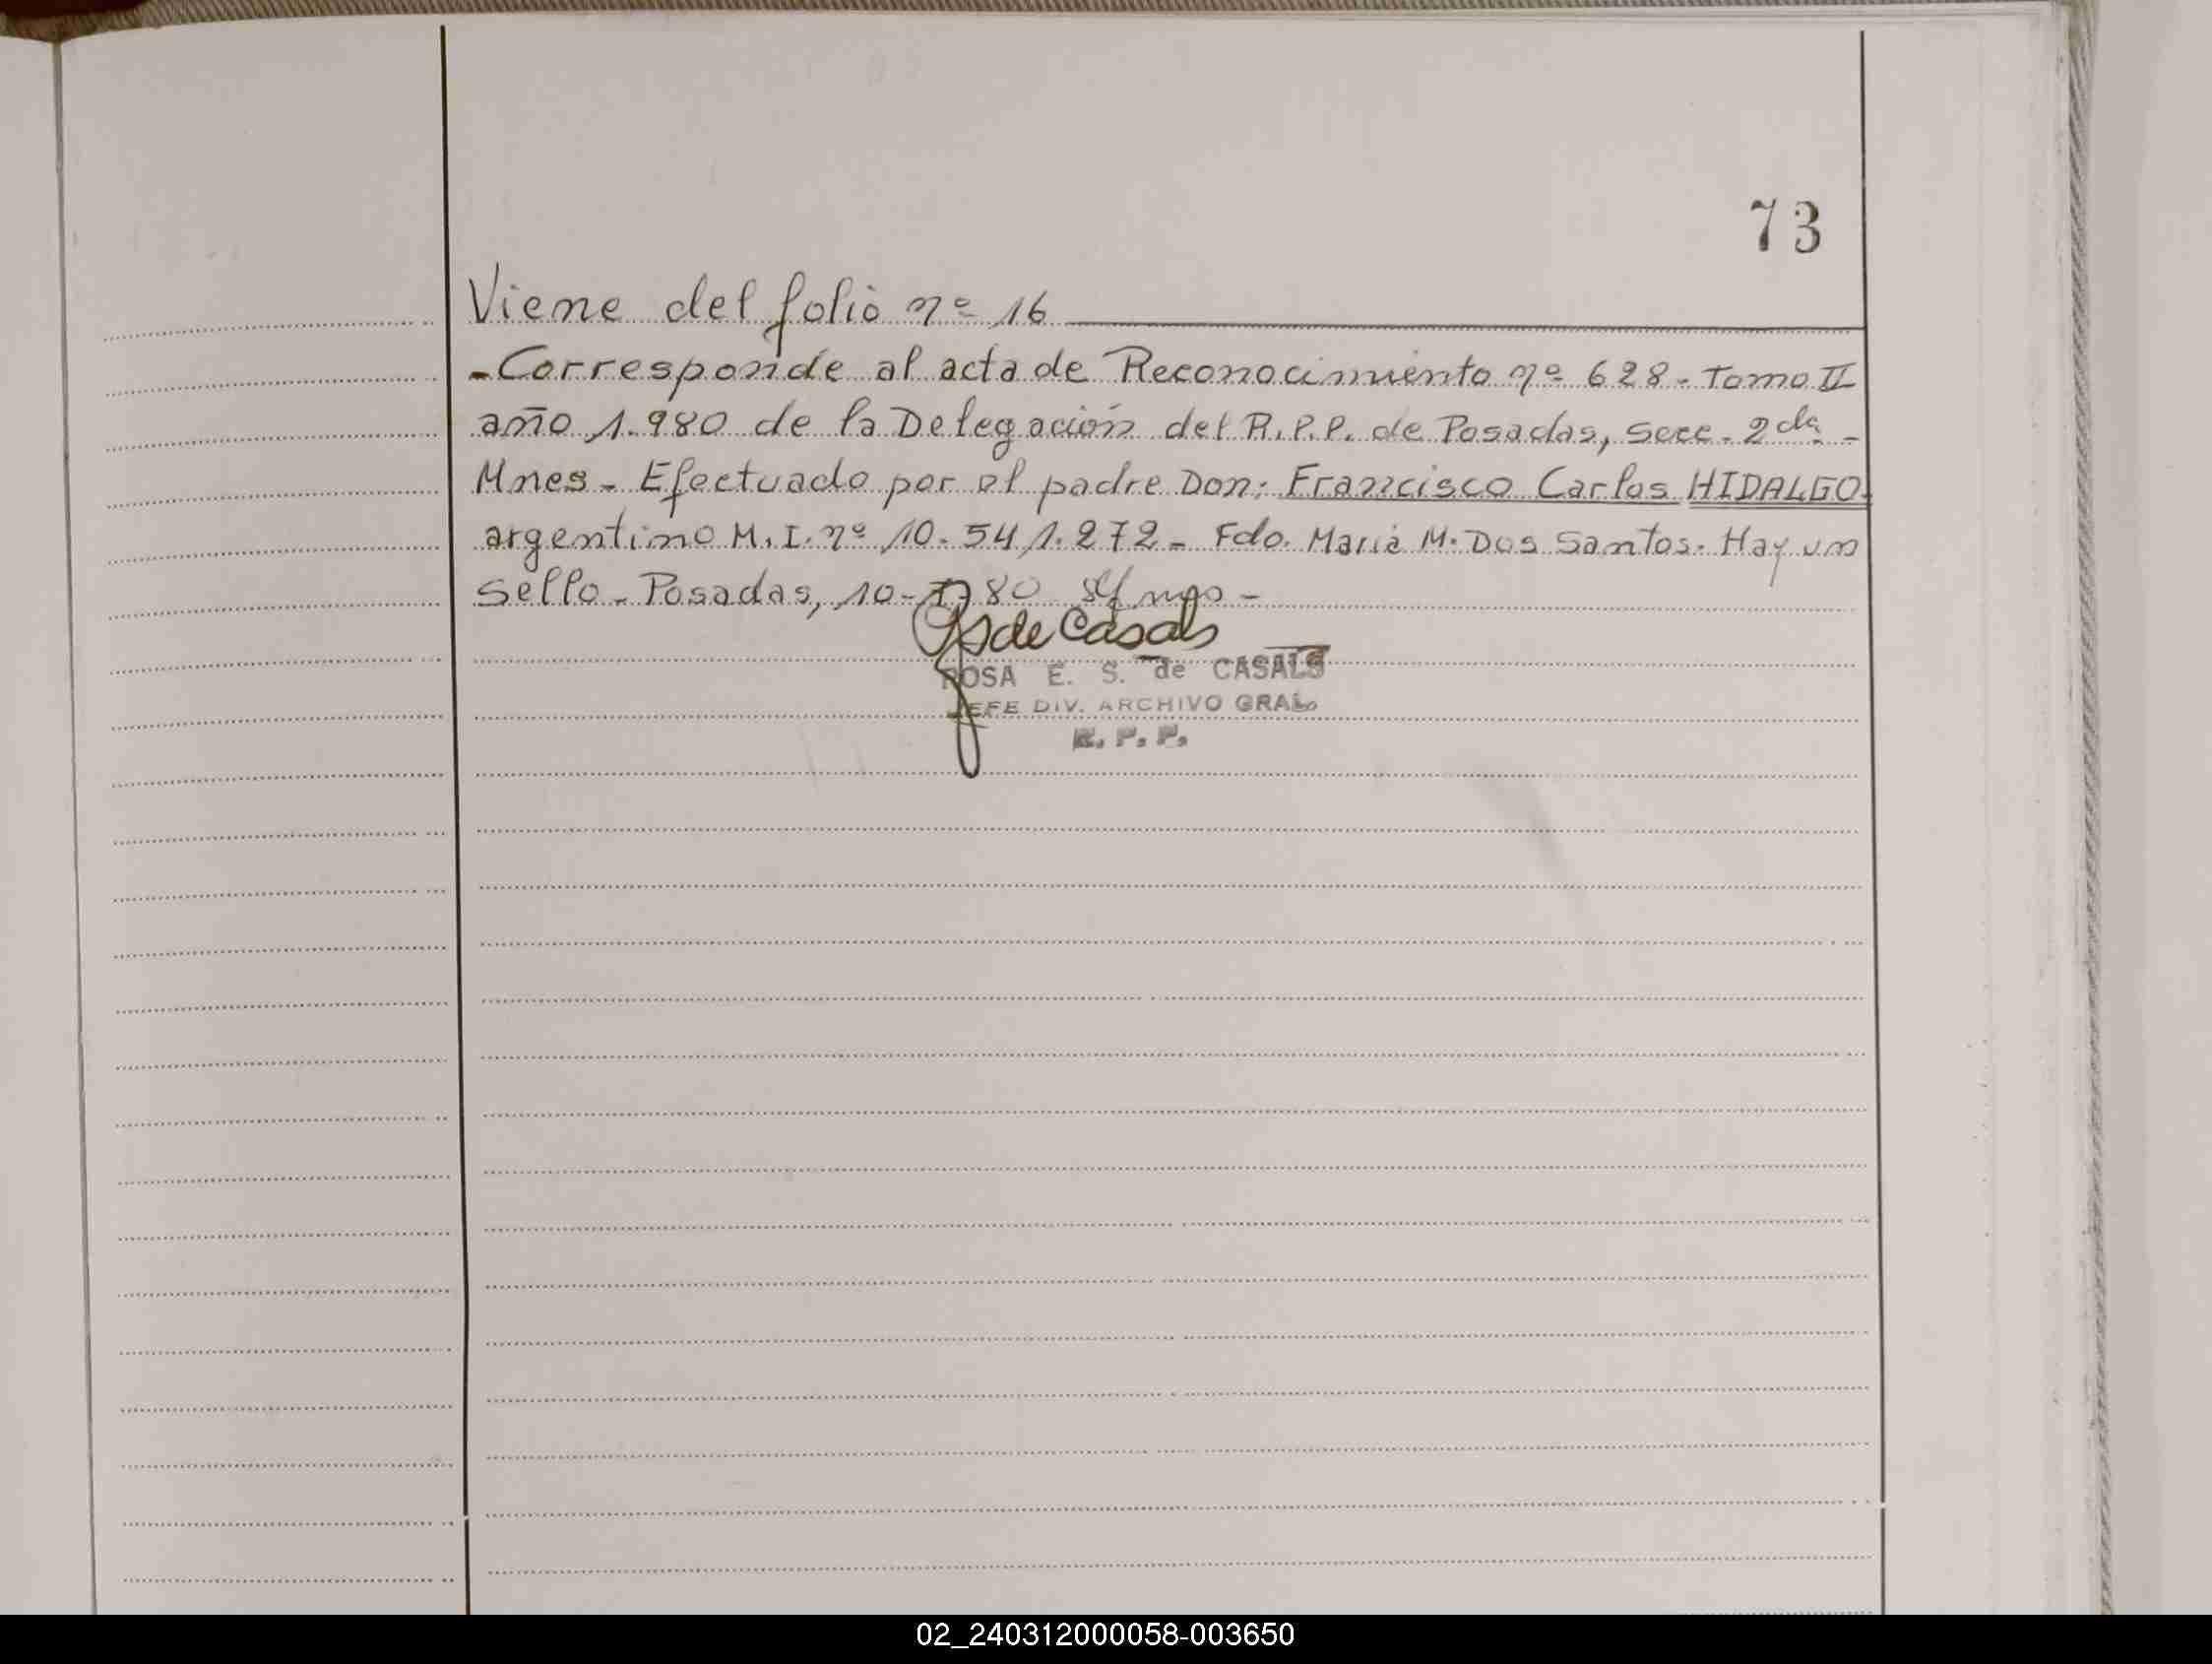 73
Viene del folio nº 16
-Corresponde al acta de Reconocimiento nº 628- Tomo II
año 1.980 de la Delegación del R.P.P. de Posadas, Secc. 2da -
Mnes- Efectuado por el padre Don: Francisco Carlos HIDALGO-
argentino M.I. nº 10.541.272- Fdo. Maria M. Dos Santos. Hay un
sello- Posadas, 10- 80
de Casals
ROSA E. S. de CASALS
JEFE DIV. ARCHIVO GRAL.
R. P. P.
02_240312000058-003650